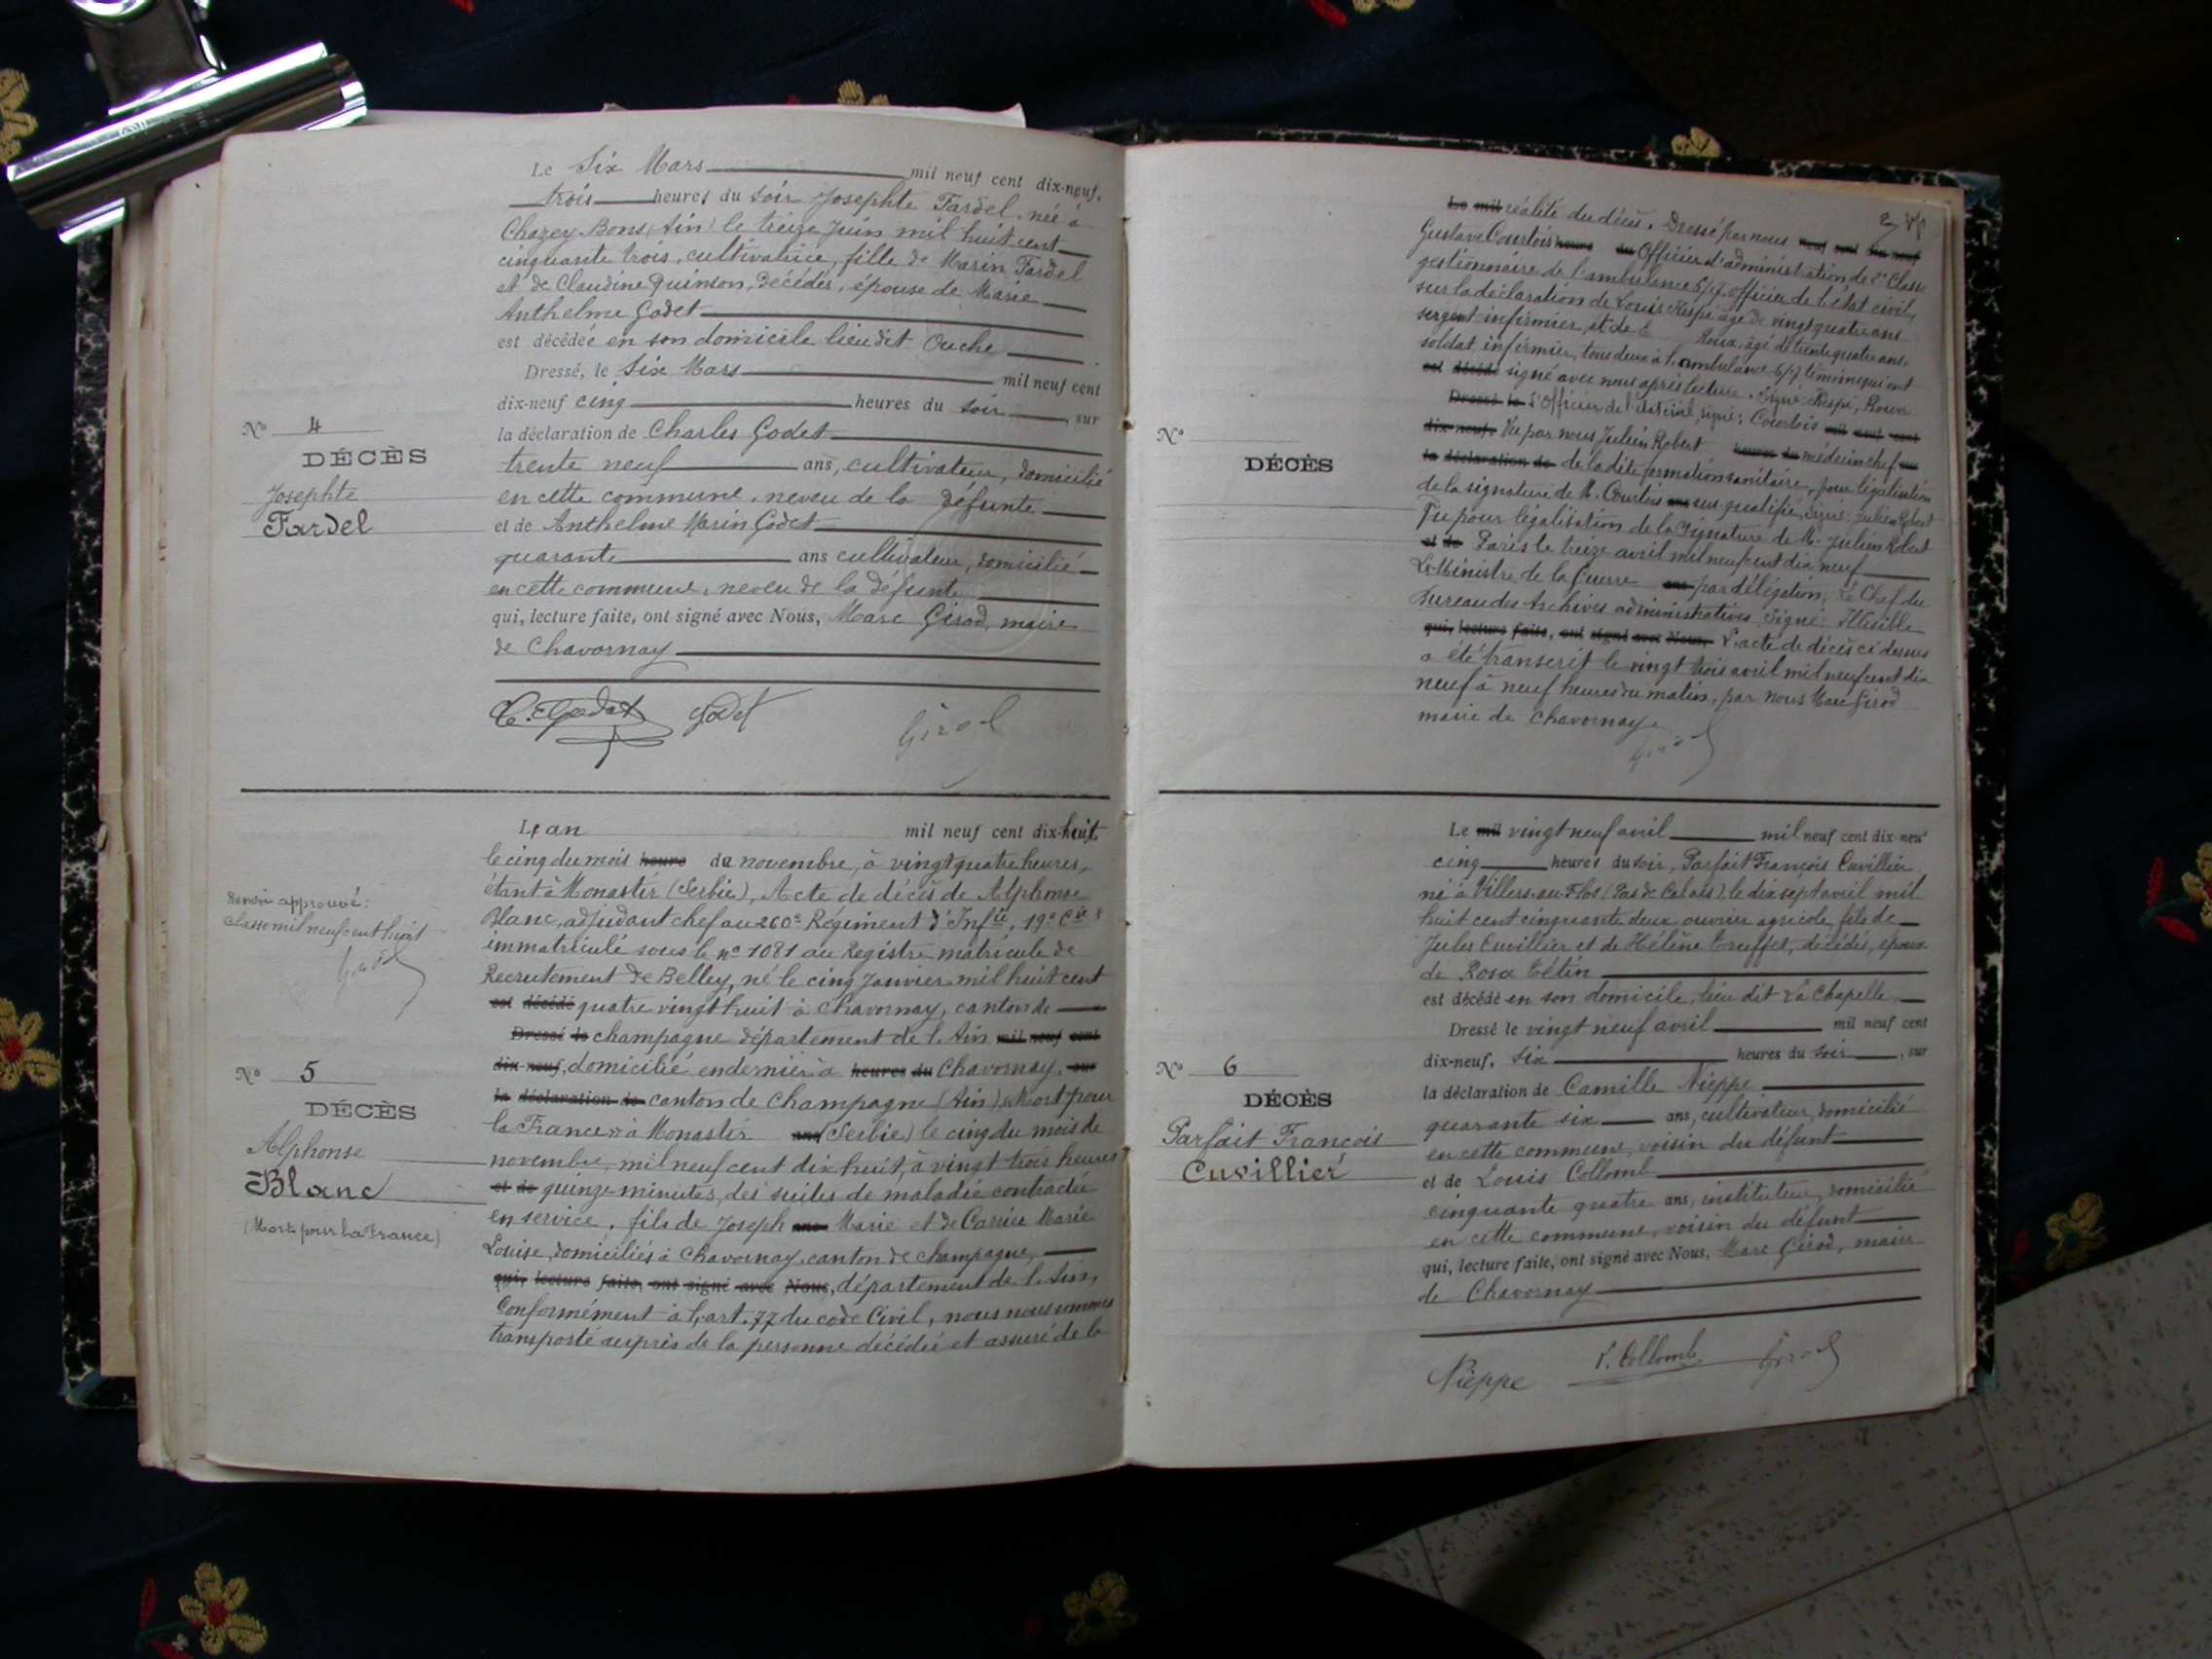 Le Six Mars mil neuf cent dix-neuf,
trois heures du soir Josephte Fardel, née à
Chazey-Bons (Ain) le treize Juin mil huit cent
cinquante trois, cultivatrice, fille de Marin Fardel
et de Claudine Quinson, décédés, épouse de Marie
Anthelme Godet
est décédée en son domicile lieu dit Ouche
Dressé, le Six Mars mil neuf cent
dix-neuf cinq heures du soir, sur
la déclaration de Charles Godet
trente neuf ans, cultivateur, domicilié
en cette commune, neveu de la défunte
et de Anthelme Marin Godet
quarante ans cultivateur, domicilié
en cette commune, neveu de la défunte
qui, lecture faite, ont signé avec Nous, Marc Girod, maire
de Chavornay
Nº 4
DÉCÈS
Josephte
Fardel
C. Godet Godet Girod
L'an mil neuf cent dix-huit
le cinq du mois heure de novembre, à vingt quatre heures,
étant à Monastir (Serbie), Acte de décès de Alphonse
Blanc, adjudant chef au 260e Régiment d'Infie, 19e Cie
immatriculé sous le nº 1081 au Registre matricule de
Recrutement de Belley, né le cinq Janvier mil huit cent
est décédé quatre vingt huit à Chavornay, canton de
Dressé le champagne département de l'Ain mil neuf cent
dix-neuf, domicilié en dernier à heures du Chavornay, sur
la déclaration de canton de Champagne (Ain), "Mort pour
la France" à Monastir ans (Serbie) le cinq du mois de
novembre, mil neuf cent dix huit, à vingt trois heures
et de quinze minutes, des suites de maladie contractée
en service, fils de Joseph ans Marie et de Carrier Marie
Louise, domiciliés à Chavornay, canton de champagne,
qui, lecture faite, ont signé avec Nous, département de l'Ain,
Conformément à l'art. 77 du code Civil, nous nous sommes
transporté auprès de la personne décédée et assuré de la
approuvé:
classe mil neuf cent huit
Girod
Nº 5
DÉCÈS
Alphonse
Blanc
(Mort pour la France)
Le mil réalité du décès. Dressé par nous neuf cent dix-neuf
Gustave Courtois heure du Officier d'administration de 2e Classe
gestionnaire de l'ambulance 6/7, officier de l'état civil,
sur la déclaration de Louis Respi âgé de vingt quatre ans
sergent infirmier, et de E Roux, âgé de trente quatre ans,
soldat infirmier, tous deux à l'ambulance 6/7 témoins qui ont
est décédé signé avec nous après lecture. Signé: Respi, Roux
Dressé le L'Officier de l'état civil, signé: Courtois mil neuf cent
dix-neuf. Vu par nous Julien Robert heures du médecin chef sur
la déclaration de de la dite formation sanitaire, pour légalisation
de la signature de M. Courtois ans sus qualifié, signé: Julien Robert
Vu pour légalisation de la signature de M. Julien Robert
et de Paris le treize avril mil neuf cent dix neuf
Le Ministre de la Guerre ans par délégation, Le Chef du
Bureau des Archives administratives Signé: Illisible
qui, lecture faite, ont signé avec Nous, L'acte de décès ci dessus
a été transcrit le vingt trois avril mil neuf cent dix
neuf à neuf heures du matin, par nous Marc Girod
maire de Chavornay.
Girod
Nº
DÉCÈS
Le mil vingt neuf avril mil neuf cent dix-neuf
cinq heures du soir, Parfait François Cuvillier
né à Villers-au-Flos (Pas de Calais), le dix sept avril mil
huit cent cinquante deux, ouvrier agricole, fils de
Jules Cuvillier et de Hélène Truffet, décédés, époux
de Rosa Tétin
est décédé en son domicile, lieu dit La Chapelle
Dressé le vingt neuf avril mil neuf cent
dix-neuf, six heures du soir, sur
la déclaration de Camille Nieppe
quarante six ans, cultivateur, domicilié
en cette commune, voisin du défunt
et de Louis Collomb
cinquante quatre ans, instituteur, domicilié
en cette commune, voisin du défunt
qui, lecture faite, ont signé avec Nous, Marc Girod, maire
de Chavornay
Nº 6
DÉCÈS
Parfait François
Cuvillier
Nieppe L. Collomb Girod